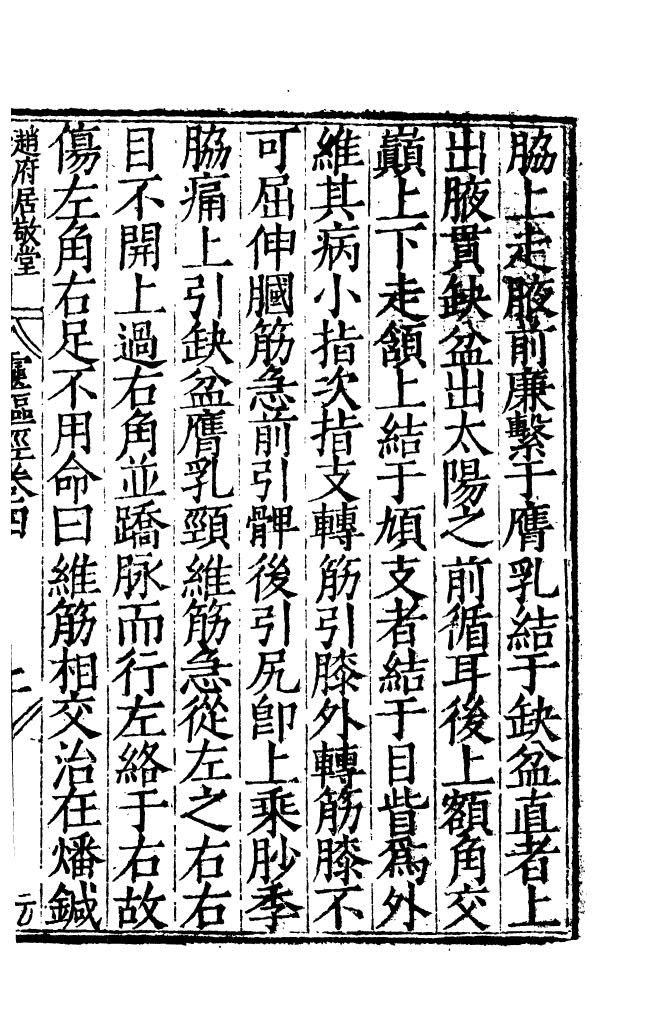 脇上走腋前廉繫于膺乳結于缺盆直者上
出腋貫缺盆出太陽之前循耳後上額角交
巔上下走頷上結于頄支者結于目眥爲外
維其病小指次指支轉筋引膝外轉筋膝不
可屈伸膕筋急前引髀後引尻卽上乘䏚季
脇痛上引缺盆膺乳頸維筋急從左之右右
目不開上過右角並蹻脉而行左絡于右故
傷左角右足不用命曰維筋相交治在燔鍼
趙府居敬堂
靈樞經卷四